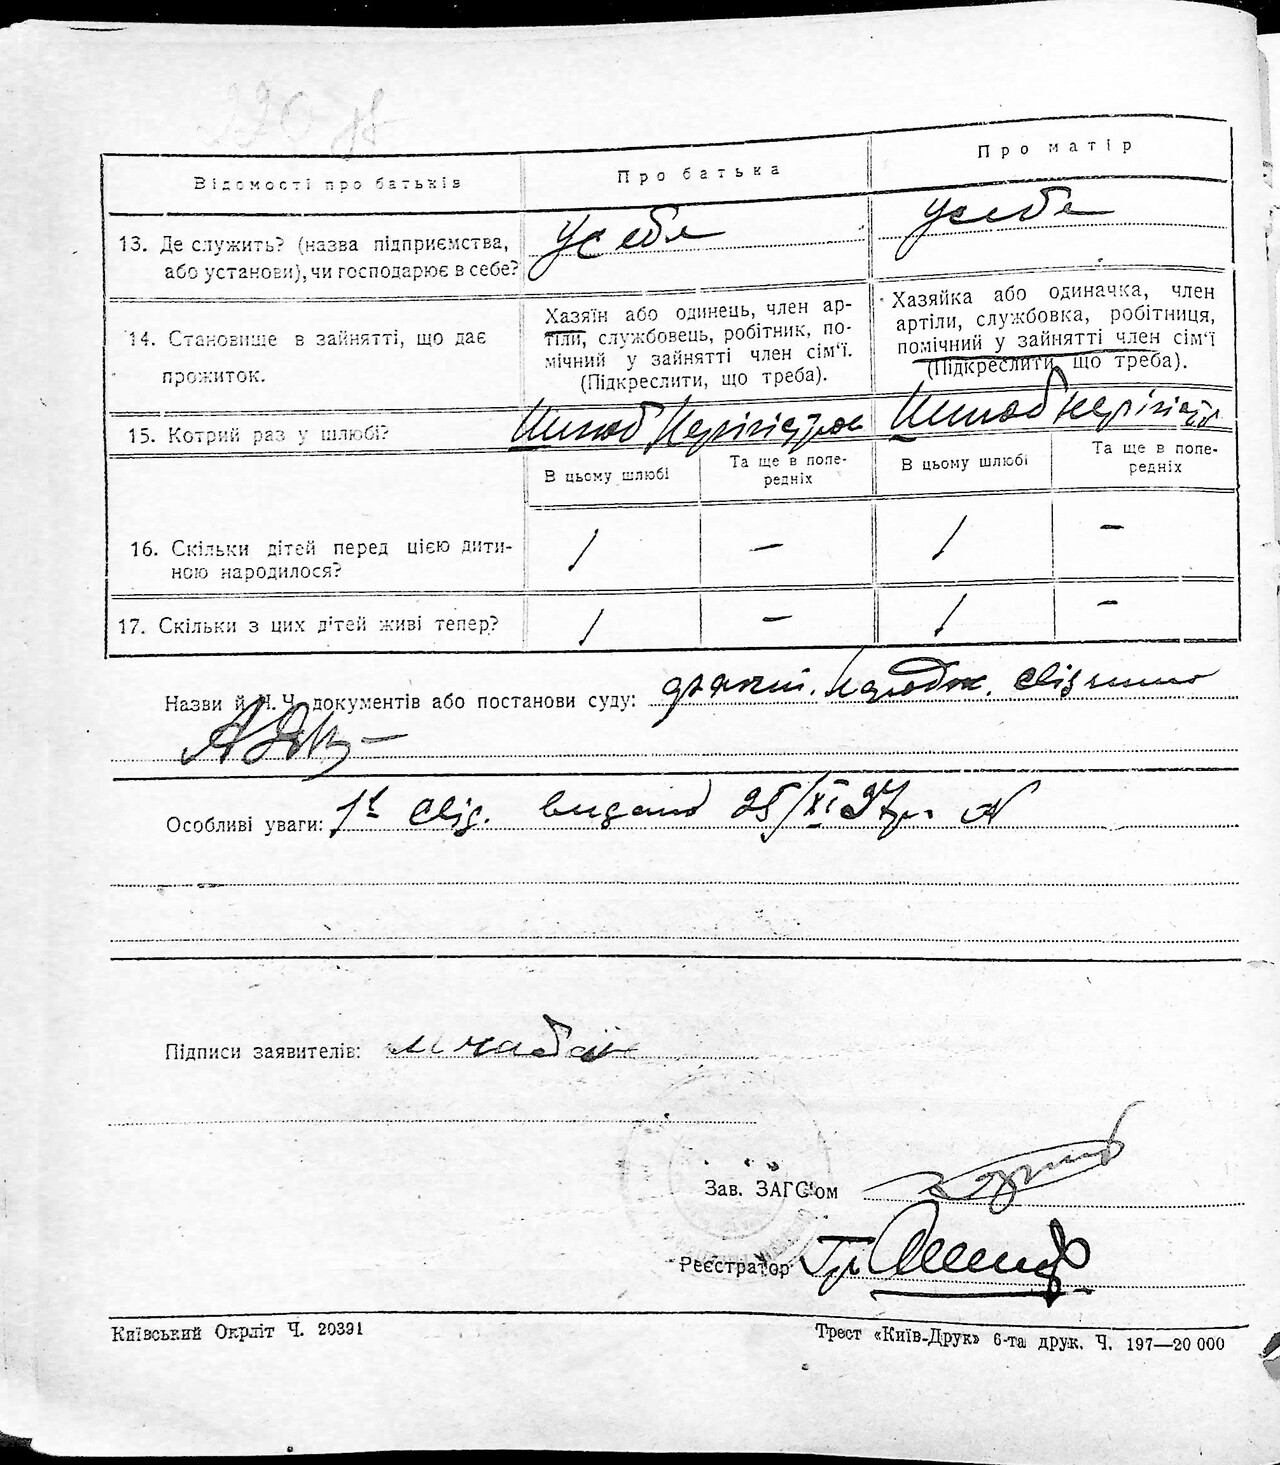 Відомості про батьків
Про батька
Про матір
13. Де служить? (назва підприємства, або установи), чи господарює в себе?
у себе
у себе
14. Становище в зайнятті, що дає прожиток.
Хазяїн або одинець, член ар-
тіли, службовець, робітник, по-
мічний у зайнятті член сім'ї.
(Підкреслити, що треба).
Хазяйка або одиначка, член
артіли, службовка, робітниця,
помічний у зайнятті член сім'ї
(Підкреслити, що треба).
15. Котрий раз у шлюбі?
Шлюб
Шлюб
В цьому шлюбі
Та ще в попе-
редніх
В цьому шлюбі
Та ще в попе-
редніх
16. Скільки дітей перед цією дити-
ною народилося?
1 — 1 —
17. Скільки з цих дітей живі тепер?
1 — 1 —
Назви й Ч. Ч. документів або постанови суду:
Особливі уваги: свід. видано 25/XI 27р.
Підписи заявителів:
Зав. ЗАГС'ом
Реєстратор
Київський Окрліт Ч. 20391
Трест «Київ-Друк» 6-та друк. Ч. 197—20 000